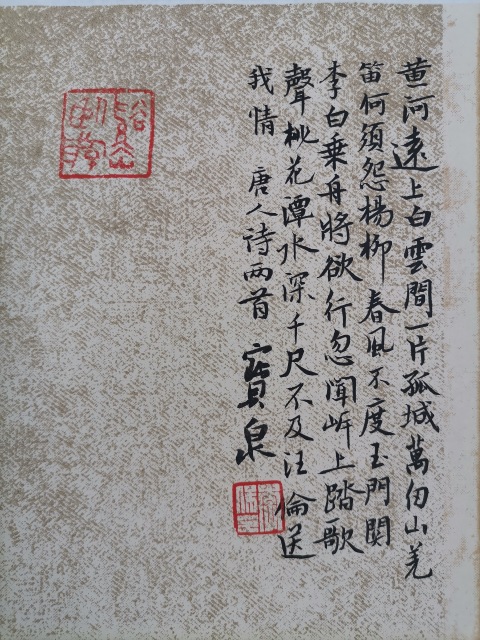 黄河遠上白雲間一片孤城萬仞山羌
笛何須怨楊柳春風不度玉門関
李白乗舟將欲行忽聞岍上踏歌
聲桃花潭水深千尺不及汪倫送
我情 唐人诗兩首 寶泉